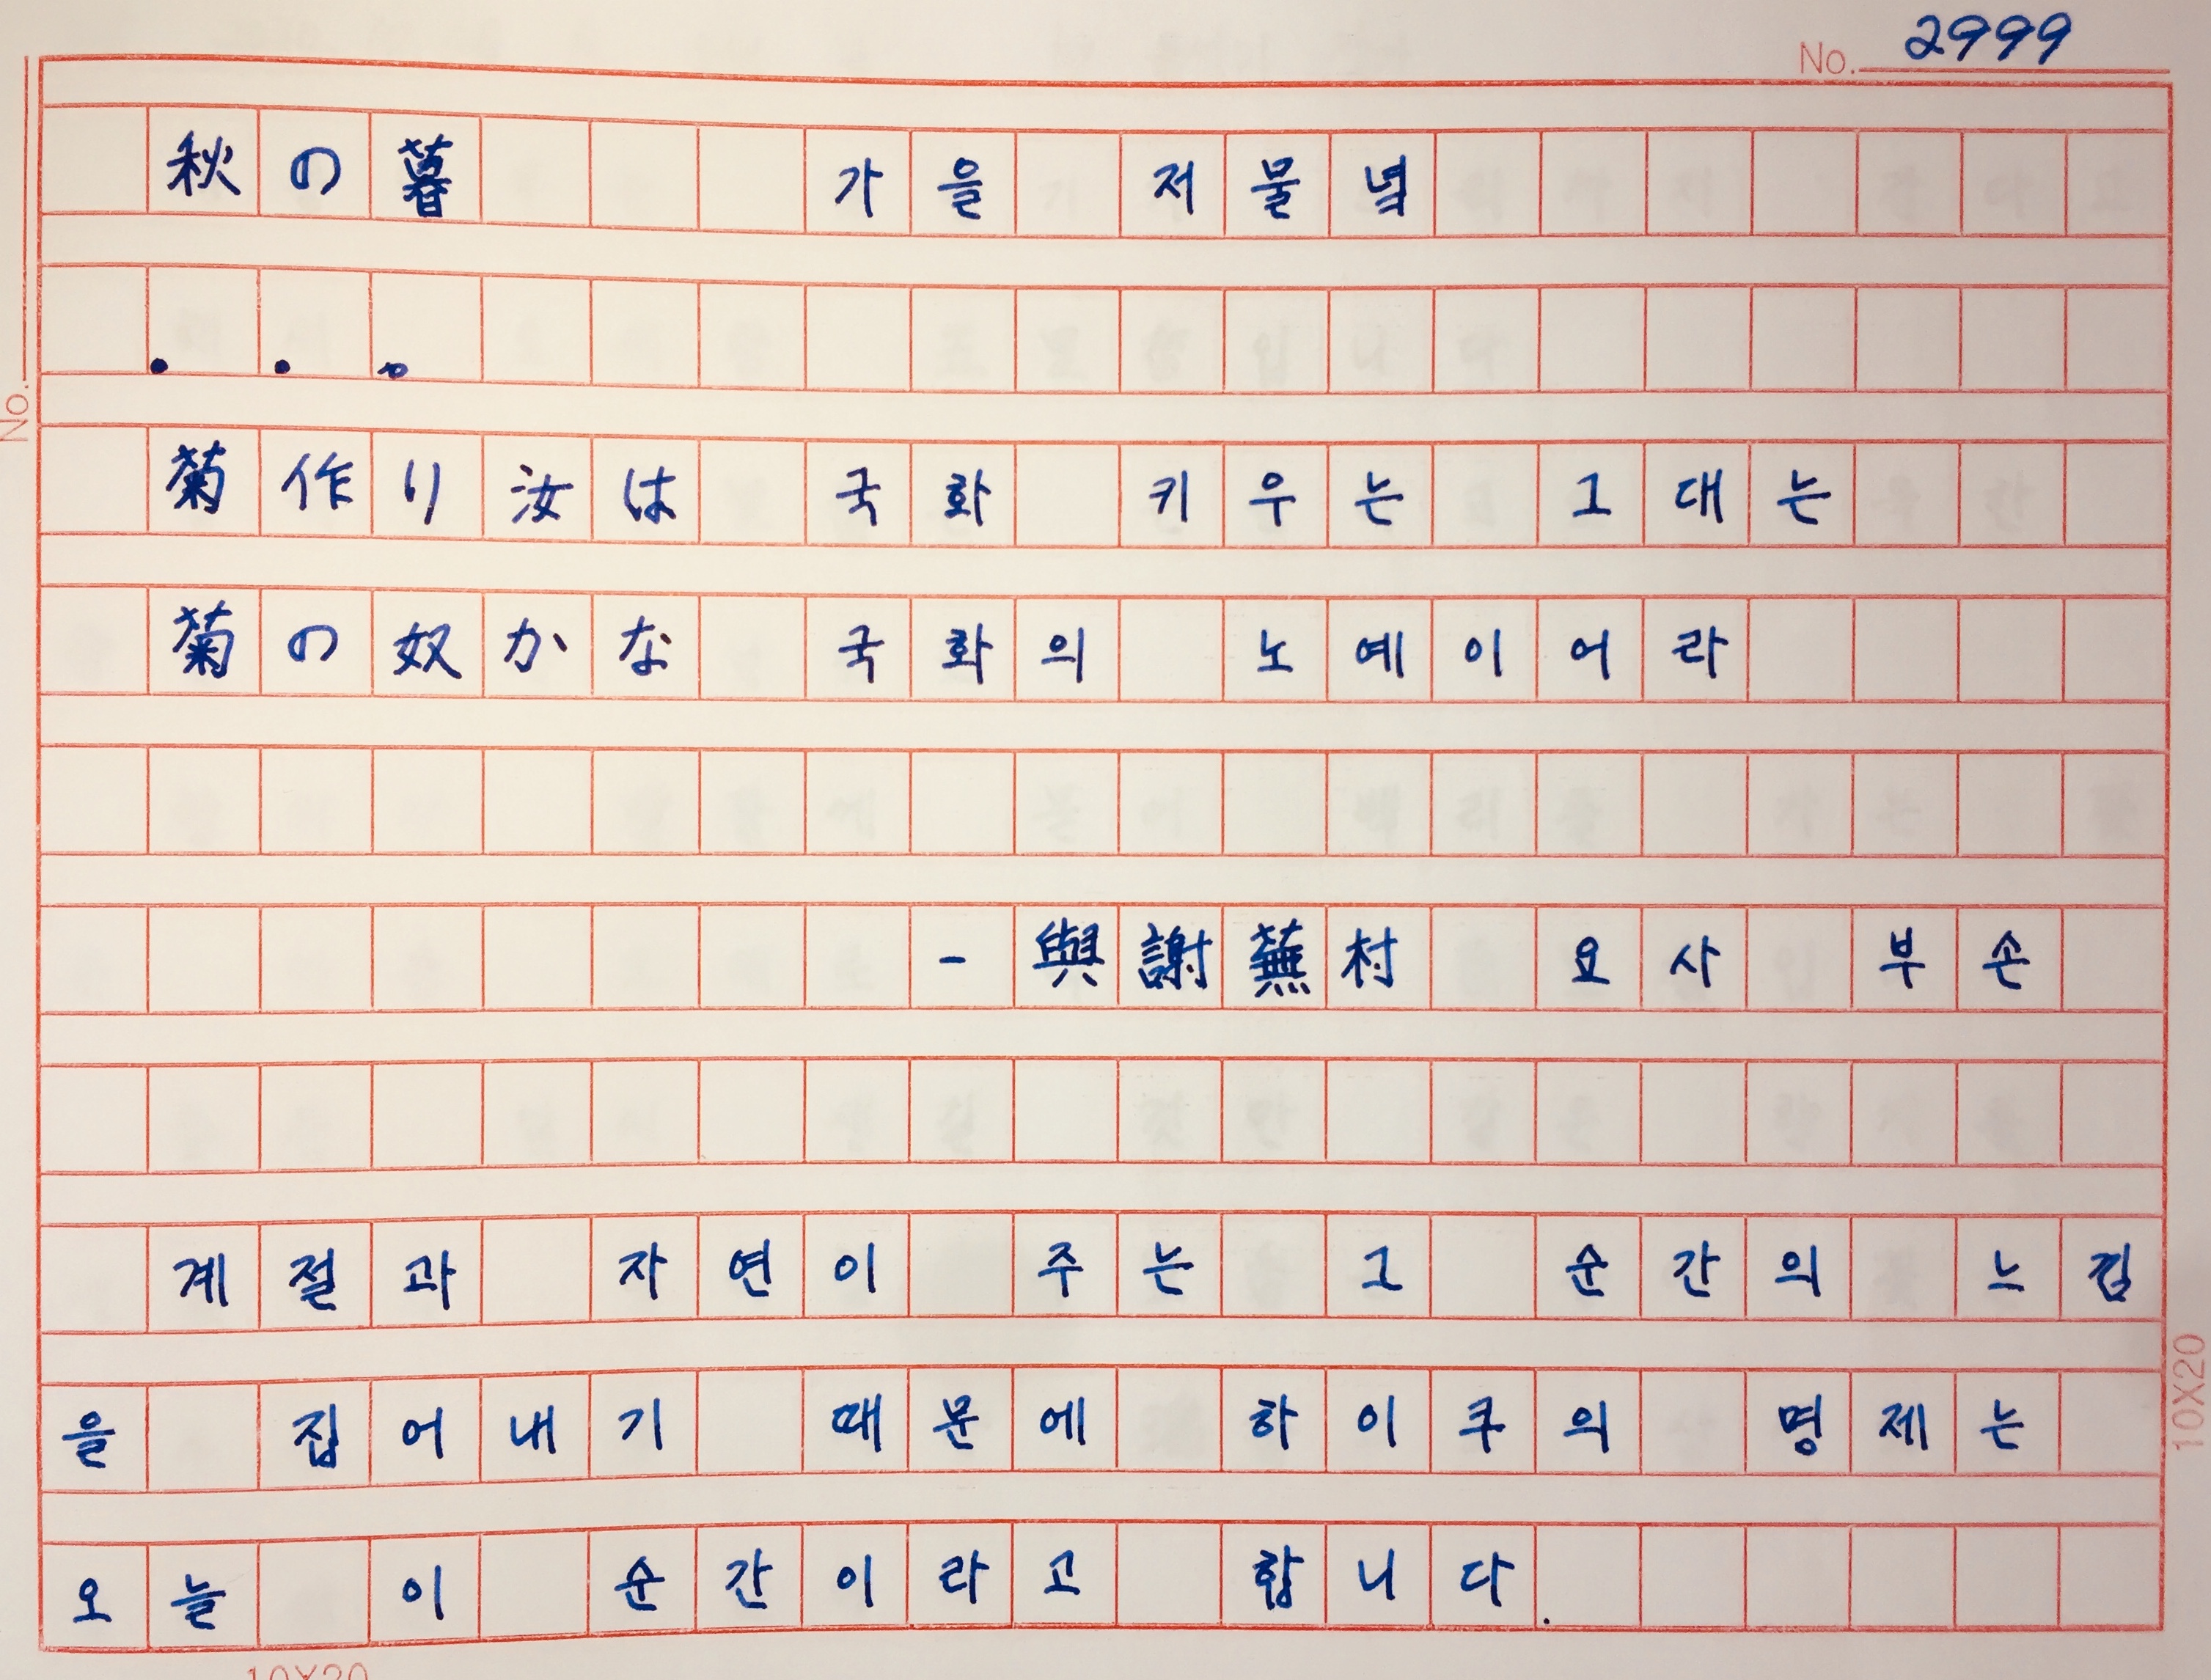 No. 2999
秋の暮 가을 저물녘
...
菊作り汝は 국화 키우는 그대는
菊の奴かな 국화의 노예이어라
- 與謝蕪村 요사 부손
계절과 자연이 주는 그 순간의 느낌
을 집어내기 때문에 하이쿠의 명제는
오늘 이 순간이라고 합니다.
No.
10X20
10X20